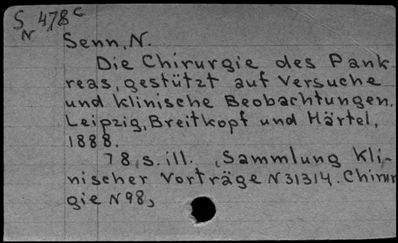 S 478c
N
Senn, N.
Die Chirurgie des Pank-
reas, gestützt auf Versuche
und klinische Beobachtungen.
Leipzig, Breitkopf und Härtel,
1888.
78, s. ill. „Sammlung kli-
nischer Vorträge N 313 14. Chirur-
gie N 98„